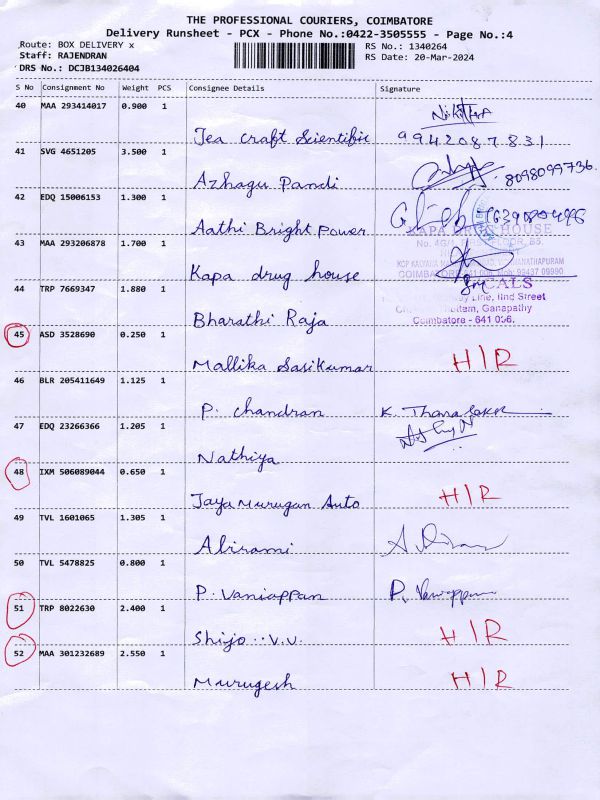 THE PROFESSIONAL COURIERS, COIMBATORE
Delivery Runsheet - PCX - Phone No.:0422-3505555 - Page No.:4
Route: BOX DELIVERY x RS No.: 1340264
Staff: RAJENDRAN RS Date: 20-Mar-2024
DRS No.: DCJB134026404
S No Consignment No Weight PCS Consignee Details Signature
40 MAA 293414017 0.900 1
Tea craft Scientific 9942087831
41 SVG 4651205 3.500 1
Azhagu Pandi 8098099736.
42 EDQ 15006153 1.300 1
Aathi Bright Power
KAPA DRUG HOUSE
43 MAA 293206878 1.700 1
Kapa drug house
44 TRP 7669347 1.880 1
Line, IInd Street
Bharathi Raja Ganapathy
Coimbatore - 641 006.
45 ASD 3528690 0.250 1
Mallika Sasikumar H/R
46 BLR 205411649 1.125 1
P. chandran
47 EDQ 23266366 1.205 1
Nathiya
48 IXM 506089044 0.650 1
Jaya Murugan Auto H/R
49 TVL 1601065 1.305 1
Abirami
50 TVL 5478825 0.800 1
P. Vaniappan
51 TRP 8022630 2.400 1
Shijo..V.V. H/R
52 MAA 301232689 2.550 1
Murugesh H/R